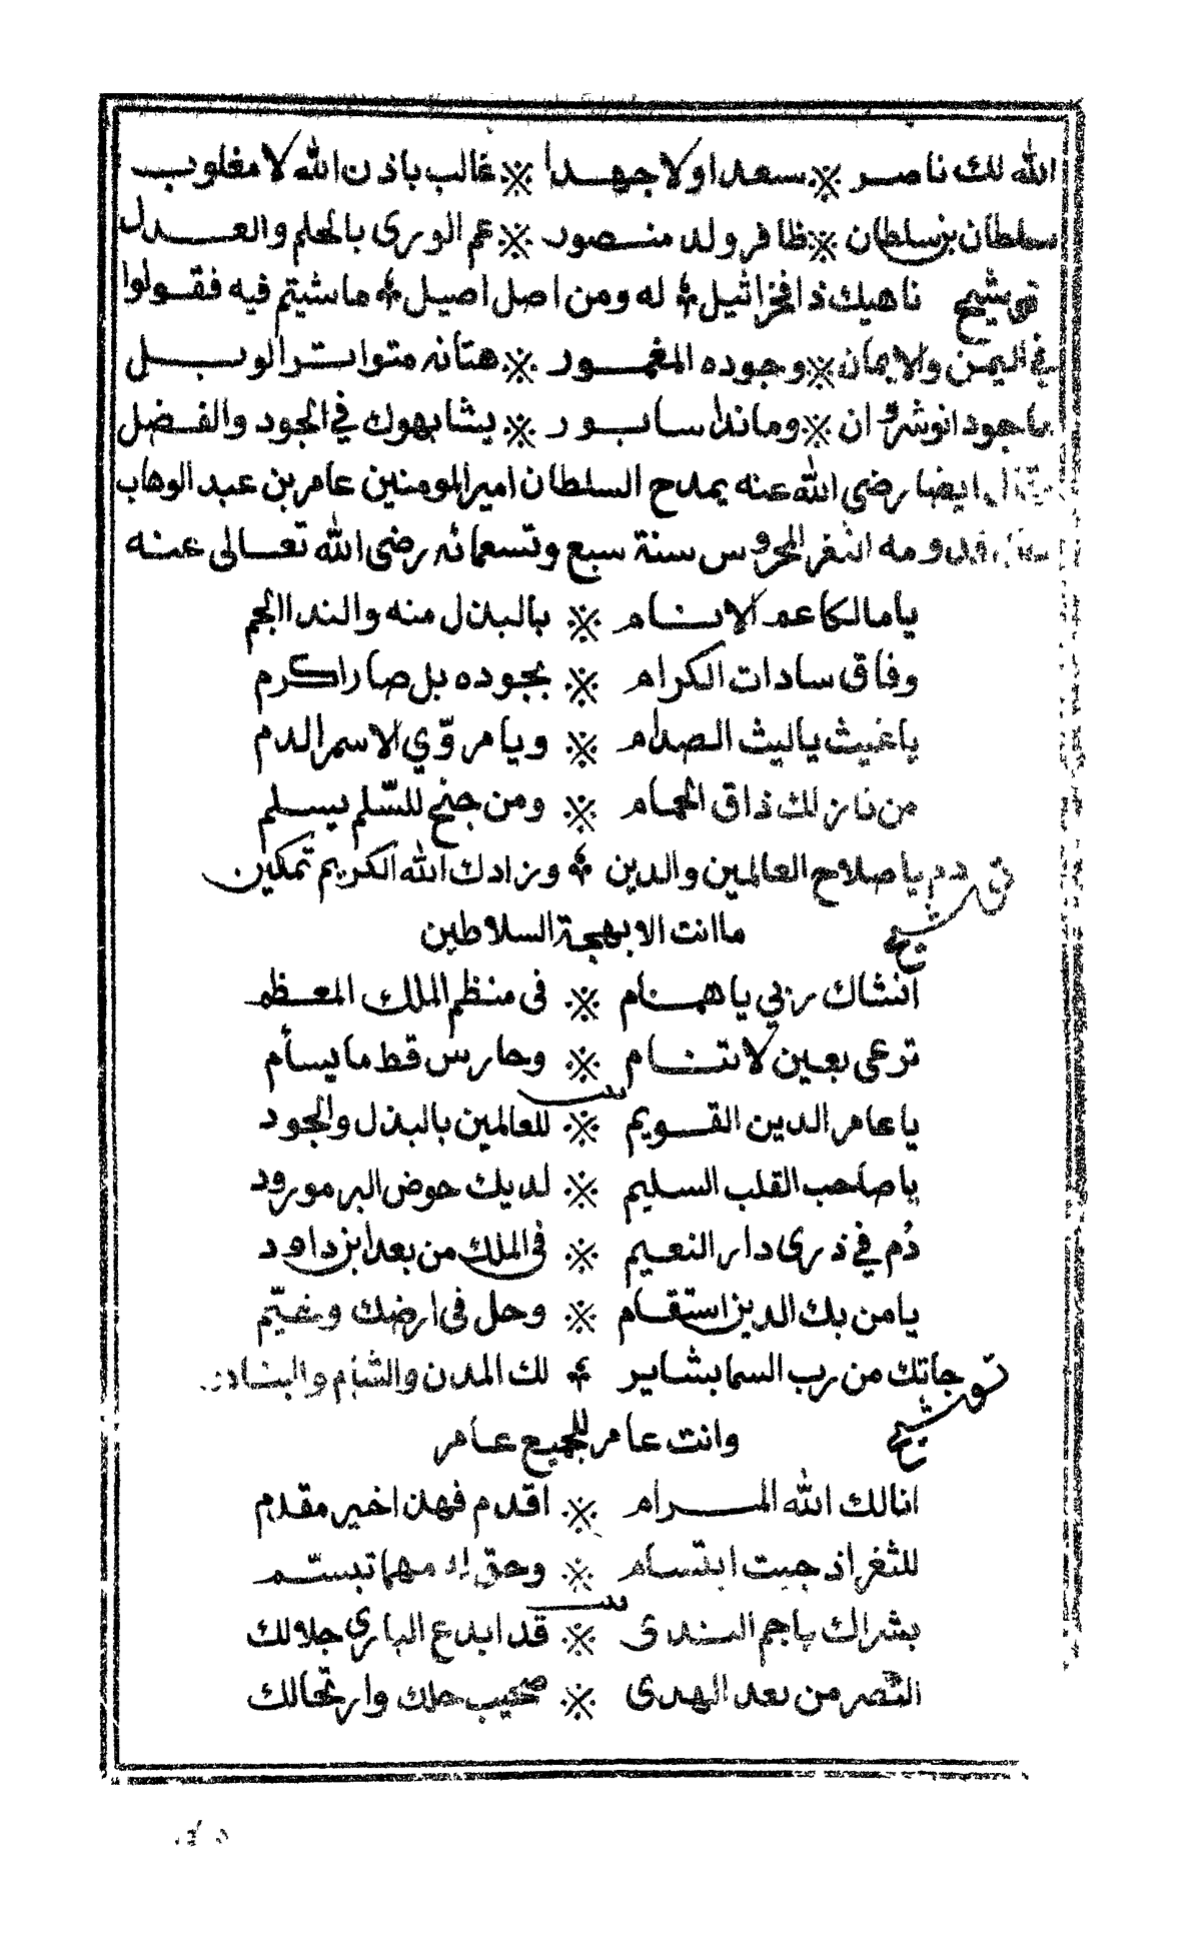 الله لك ناصر ※ سعدا ولا جهدا ※ غالب باذن الله لا مغلوب
سلطان بن سلطان ※ ظافر ولد منصور ※ عم الورى بالحلم والعدل
توشيح ناهيك ذا فخرا ثيل له ومن اصل اصيل ما شيتم فيه فقولوا
في اليمن والايمان ※ وجوده المغمور ※ هتانه متواتر الوبل
ما جود انوشروان ※ وماندا سابور ※ يشابهوك في الجود والفضل
وقال ايضا رضي الله عنه يمدح السلطان امير المومنين عامر بن عبد الوهاب
قدومه الثغر المحروس سنة سبع وتسعمائه رضى الله تعالى عنه
يا مالكا عم الانام ※ بالبذل منه والندا الجم
وفاق سادات الكرام ※ بجوده بل صار اكرم
يا غيث يا ليث الصدام ※ ويا مروّي الاسمر الدم
من نازلك ذاق الحمام ※ ومن جنح للسّلم يسلم
توشيح دم يا صلاح العالمين والدين وزادك الله الكريم تمكين
ما انت الا بهجة السلاطين
انشاك ربي يا همام ※ فى منظم الملك المعظم
ترعى بعين لا تنام ※ وحارس قط ما يسأم
بيت
يا عامر الدين القويم ※ للعالمين بالبذل والجود
يا صاحب القلب السليم ※ لديك حوض البر مورود
دُم في ذرى دار النعيم ※ فى الملك من بعد ابن داود
يا من بك الدين استقام ※ وحل فى ارضك وخيّم
توشيح جاتك من رب السما بشاير لك المدن والشام والبنادر
وانت عامر للجميع عامر
انالك الله المرام ※ اقدم فهذا خير مقدم
للثغر اذ جيت ابتسام ※ وحق له مهما تبسّم
بيت
بشراك يا جم الندى ※ قد ابدع الباري جلالك
النصر من بعد الهدى ※ صحيب حلك وارتحالك